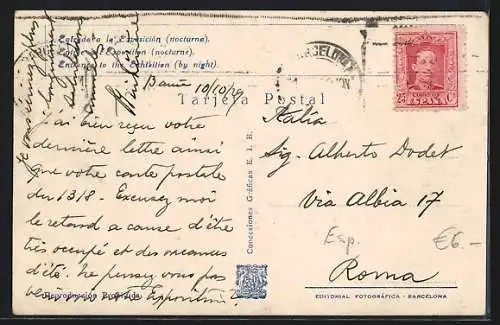 Entrada a la Exposición (nocturna).
Entrée de l'Exposition (nocturne).
Entrance to the Exhibition (by night).
BARCELONA
Tarjeta Postal
10/10/29
J'ai bien reçu votre
dernière lettre ainsi
que votre carte postale
du 13/8. Excusez moi
le retard a cause d'être
très occupé et des vacances
d'été. Ne pensez vous pas
venir voir votre Exposition?
Reproducción Prohibida
Concesiones Gráficas E. I. B.
CORREOS
ESPAÑA
25 Cs
Italia
Sig. Alberto Dodet
Via Albia 17
Esp.
€6-
Roma
EDITORIAL FOTOGRÁFICA - BARCELONA